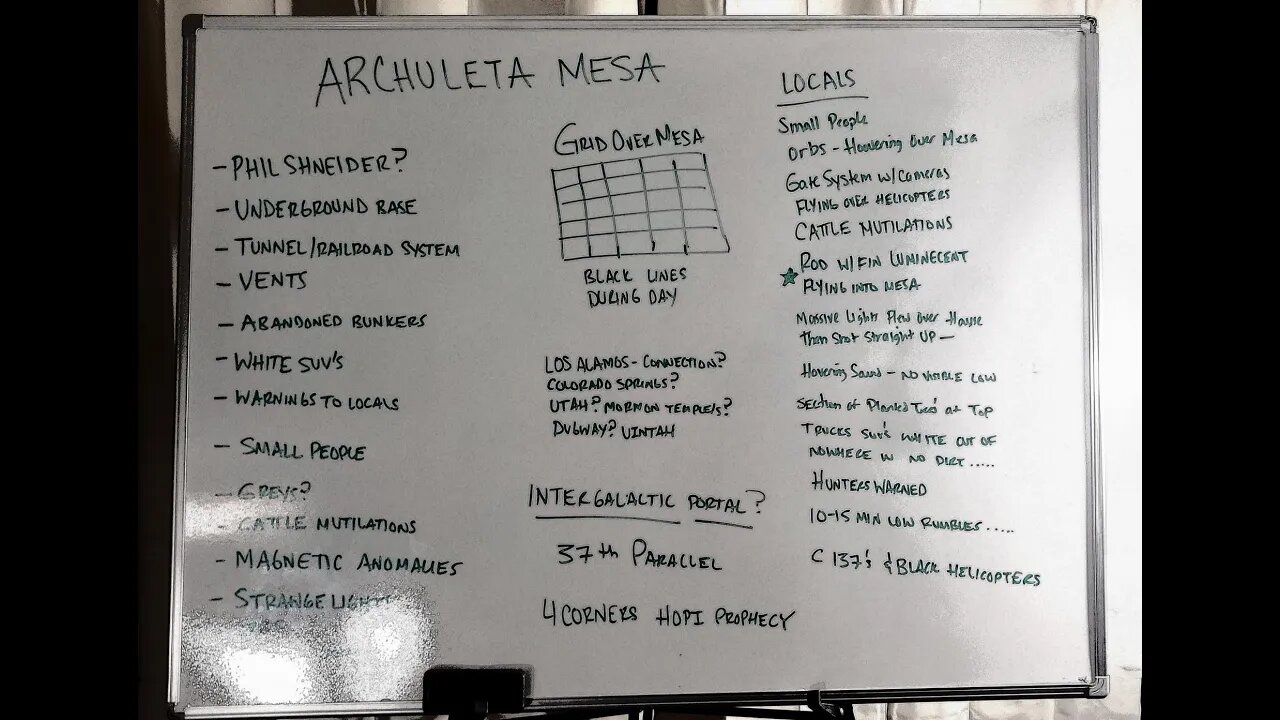 ARCHULETA MESA
- PHIL SHNEIDER?
- UNDERGROUND BASE
- TUNNEL/RAILROAD SYSTEM
- VENTS
- ABANDONED BUNKERS
- WHITE SUV'S
- WARNINGS TO LOCALS
- SMALL PEOPLE
- GREYS?
- CATTLE MUTILATIONS
- MAGNETIC ANOMALIES
- STRANGE LIGHTS
GRID OVER MESA
BLACK LINES
DURING DAY
LOS ALAMOS - CONNECTION?
COLORADO SPRINGS?
UTAH? MORMON TEMPLE/S?
DUGWAY? UINTAH
INTERGALACTIC PORTAL?
37th PARALLEL
4 CORNERS HOPI PROPHECY
LOCALS
Small People
Orbs - Hoovering Over Mesa
Gate System w/Cameras
FLYING OVER HELICOPTERS
CATTLE MUTILATIONS
ROD W/FIN LUMINECENT
FLYING INTO MESA
Massive Lights Flew Over House
then Shot Straight UP -
Hovering Sound - NO VISIBLE LOW
Section of Planted Trees at TOP
TRUCKS SUV's WHITE OUT OF
NOWHERE W NO DIRT.....
HUNTERS WARNED
10-15 MIN LOW RUMBLES.....
C 137's & BLACK HELICOPTERS